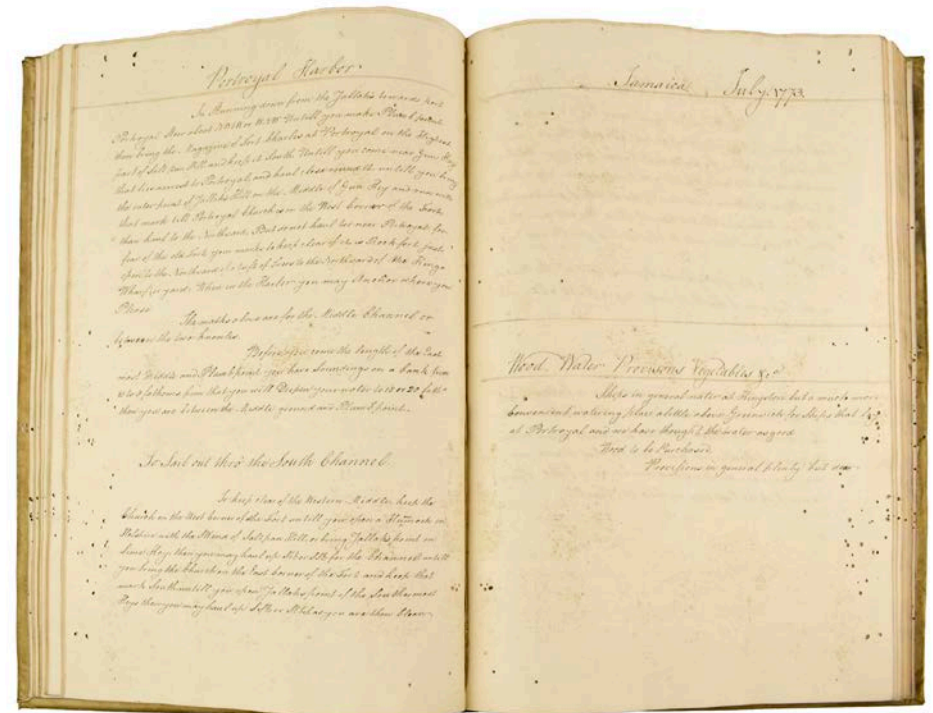 Portroyal Harbor.
In Running down from the Yallahs towards port
Portroyal Steer about WNW or W.b.N Untill you make Plumb point
then bring the Magazine of Fort Charles at Portroyal on the Highest
part of Saltpan Hill and keep it South Untill you come near Gun Key
that lies nearest to Portroyal, and haul close round it untill you bring
the outer point of Yallahs Hill on the Middle of Gun Key and run with
that mark till Portroyal Church is on the West Corner of the Fort,
then haul to the Northward, But do not haul too near Portroyal for
fear of the old Fort, your marks to keep clear of it is Rock fort just
open to the Northward of a tuft of Trees to the Northward of the Kings
Wharf or yard. When in the Harbor you may Anchor where you
Please
The marks above are for the Middle Channel or
between the two
Before you come the length of the East
most Middle and Plumb point you have Soundings on a bank from
to 10 fathoms from that you will Deepen your water to 18 or 20 fath
then you are between the Middle ground and Plumb point.
To Sail out thro' the South Channel
To keep clear of the Western Middle keep the
Church on the West Corner of the Fort untill you open a Hummock in
with the of Saltpan Hill, or bring Yallahs point on
Lime Key, then you may haul up for the Channel untill
you bring the Church on the East Corner of the Fort and keep that
mark South untill you open Yallahs point of the Southermost
Keys then you may haul up as you are then Clear
Jamaica July 1773
Wood Water Provisons Vegitables &c
Ships in general water at Kingston but a much more
convenient watering place a little above Greenwich for Ships that lay
at Portroyal and we have thought the water as good
Wood to be Purchased
Provisions in general plenty but dear